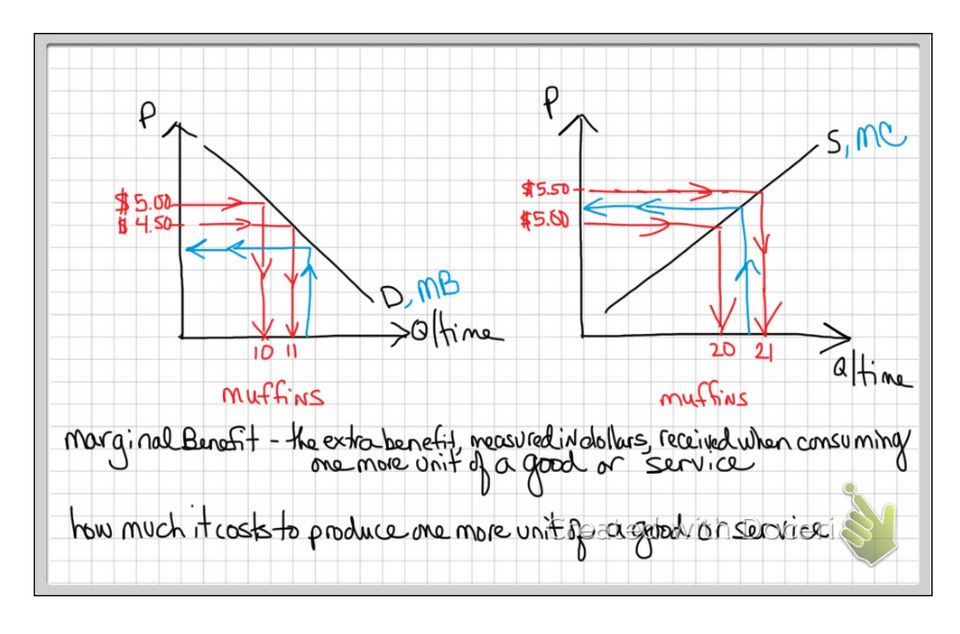 P
$5.00
$4.50
D, MB
Q/time
10 11
muffins
P
S, MC
$5.50
$5.00
20 21
Q/time
muffins
marginal Benefit - the extra benefit, measured in dollars, received when consuming
one more unit of a good or service
how much it costs to produce one more unit of a good or service
Created with Doceri